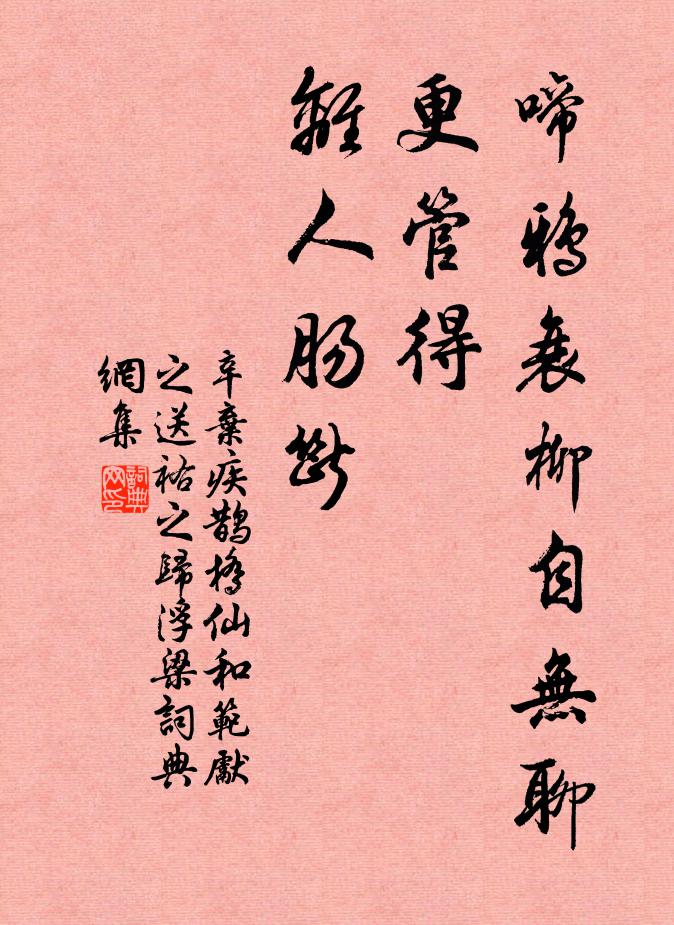 啼鴉衰柳自無聊
更管得
離人腸斷
辛棄疾鵲橋仙和範獻
之送祐之歸浮梁詞典
網集
詞典網印